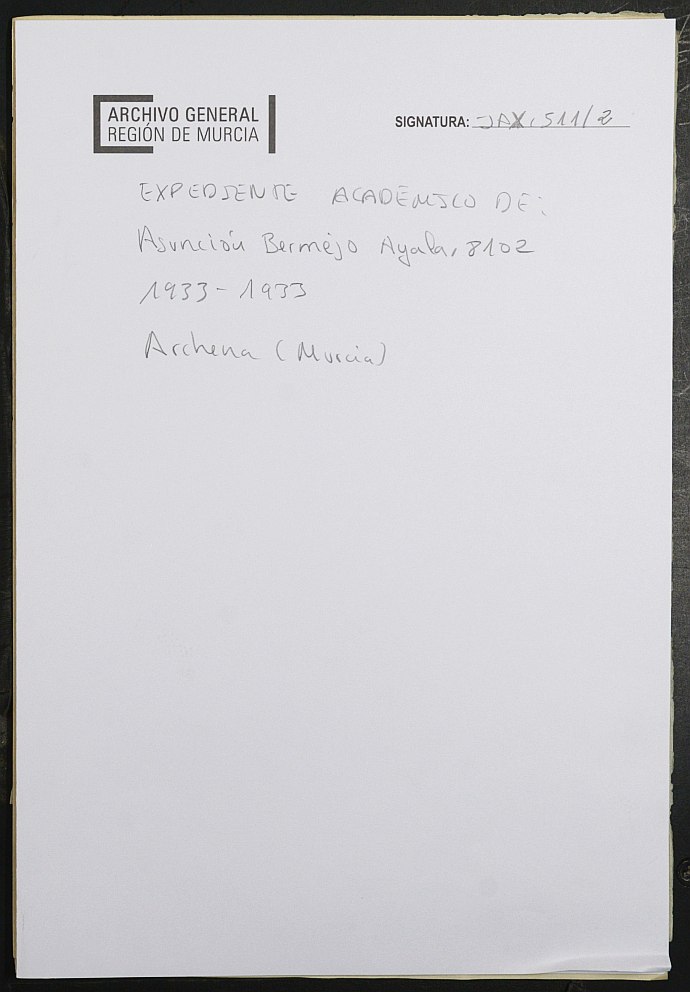 ARCHIVO GENERAL
REGIÓN DE MURCIA
SIGNATURA: JAX, 511/2
EXPEDIENTE ACADÉMICO DE:
Asunción Bermejo Ayala, 8102
1933-1933
Archena (Murcia)